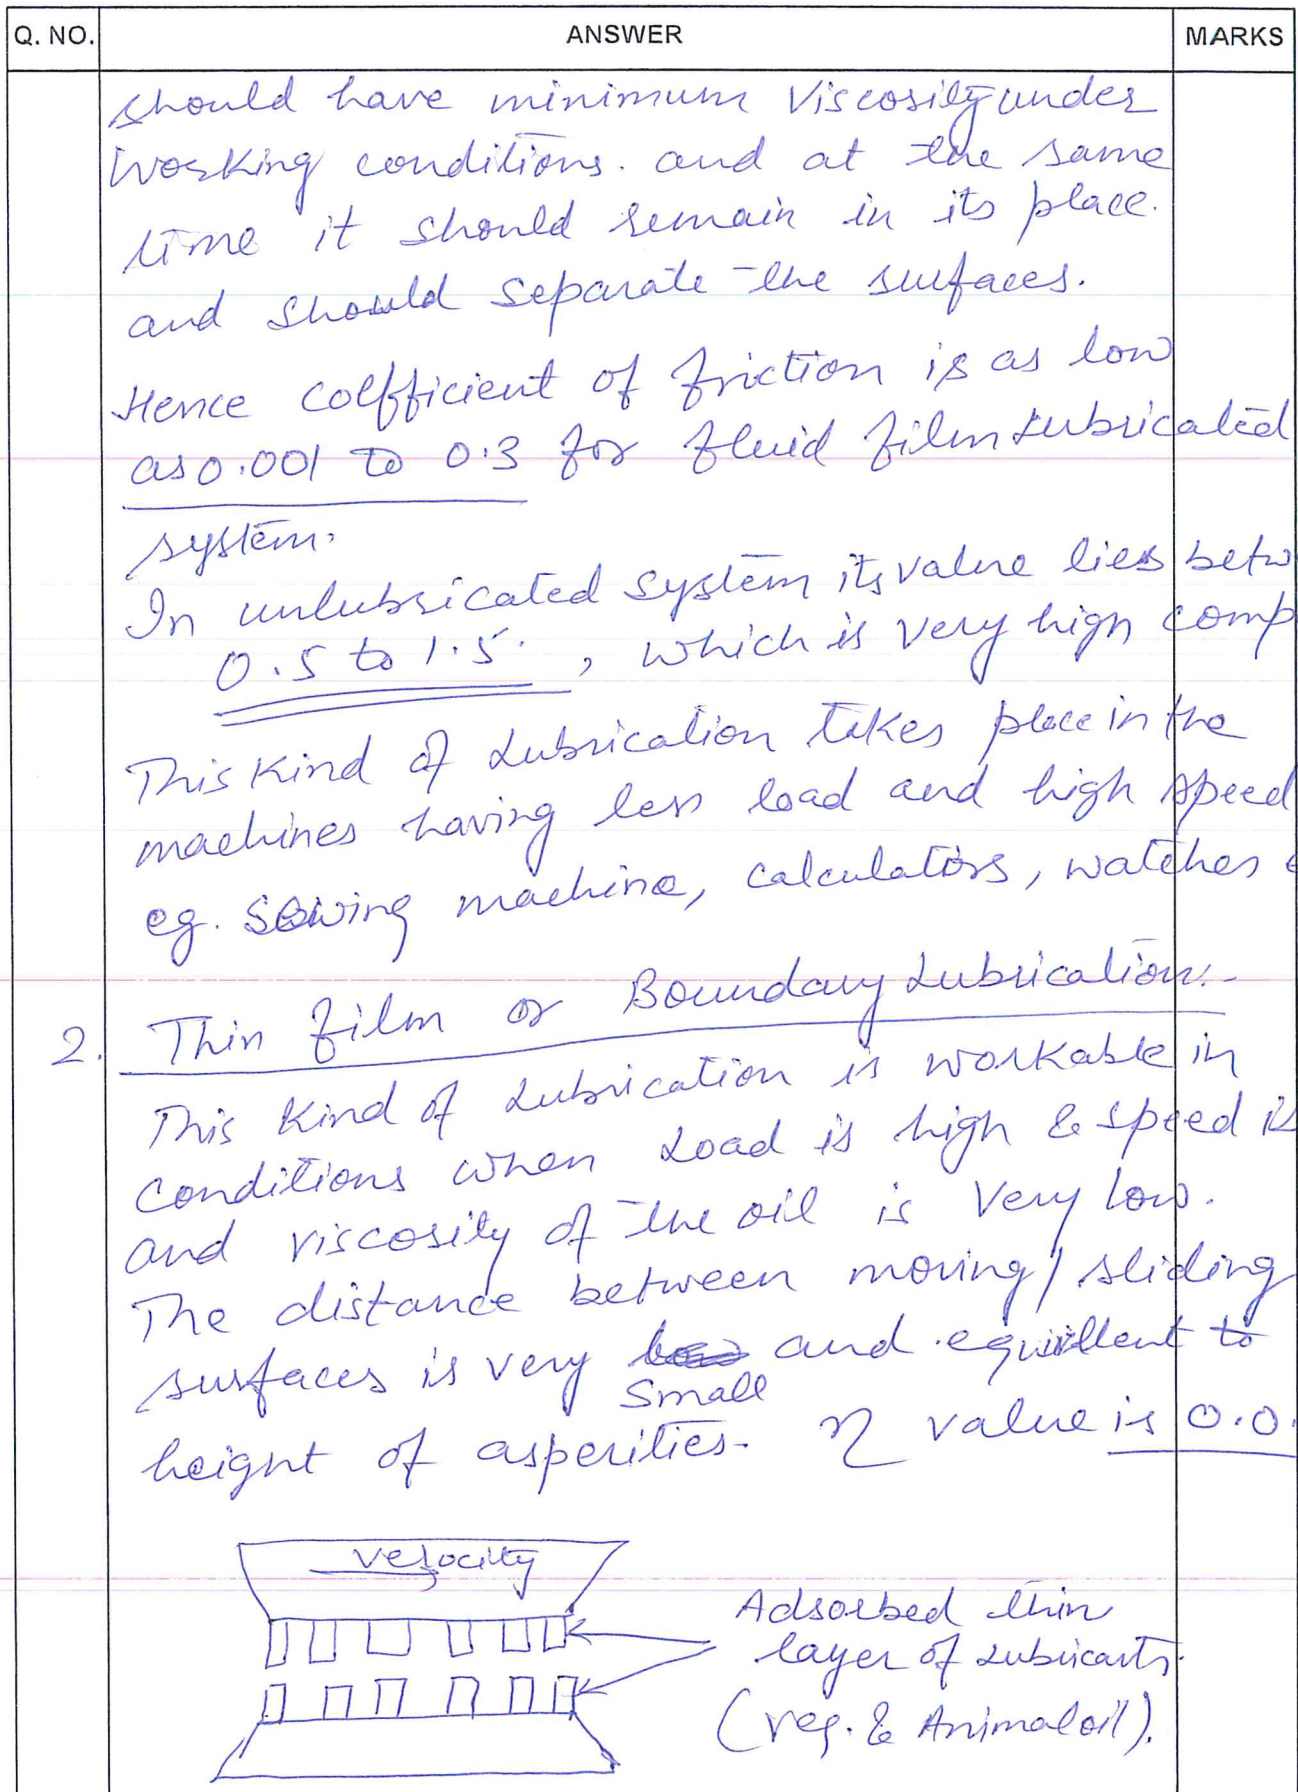 Q. NO. ANSWER MARKS
should have minimum Viscosity under
working conditions. and at the same
time it should remain in its place.
and should separate the surfaces.
Hence coefficient of friction is as low
as 0.001 to 0.3 for fluid film Lubricated
system.
In unlubricated system its value lies betw
0.5 to 1.5. , which is very high comp
This Kind of Lubrication takes place in the
machines having less load and high speed
eg. Sewing machine, calculators, watches
2. Thin film or Boundary Lubrication:-
This Kind of Lubrication is workable in
conditions when Load is high & speed is
and viscosity of the oil is Very low.
The distance between moving/sliding
surfaces is very small and equivellent to
height of asperities. η value is 0.0
velocity
Adsorbed thin
layer of Lubricants.
(veg. & Animal oil).